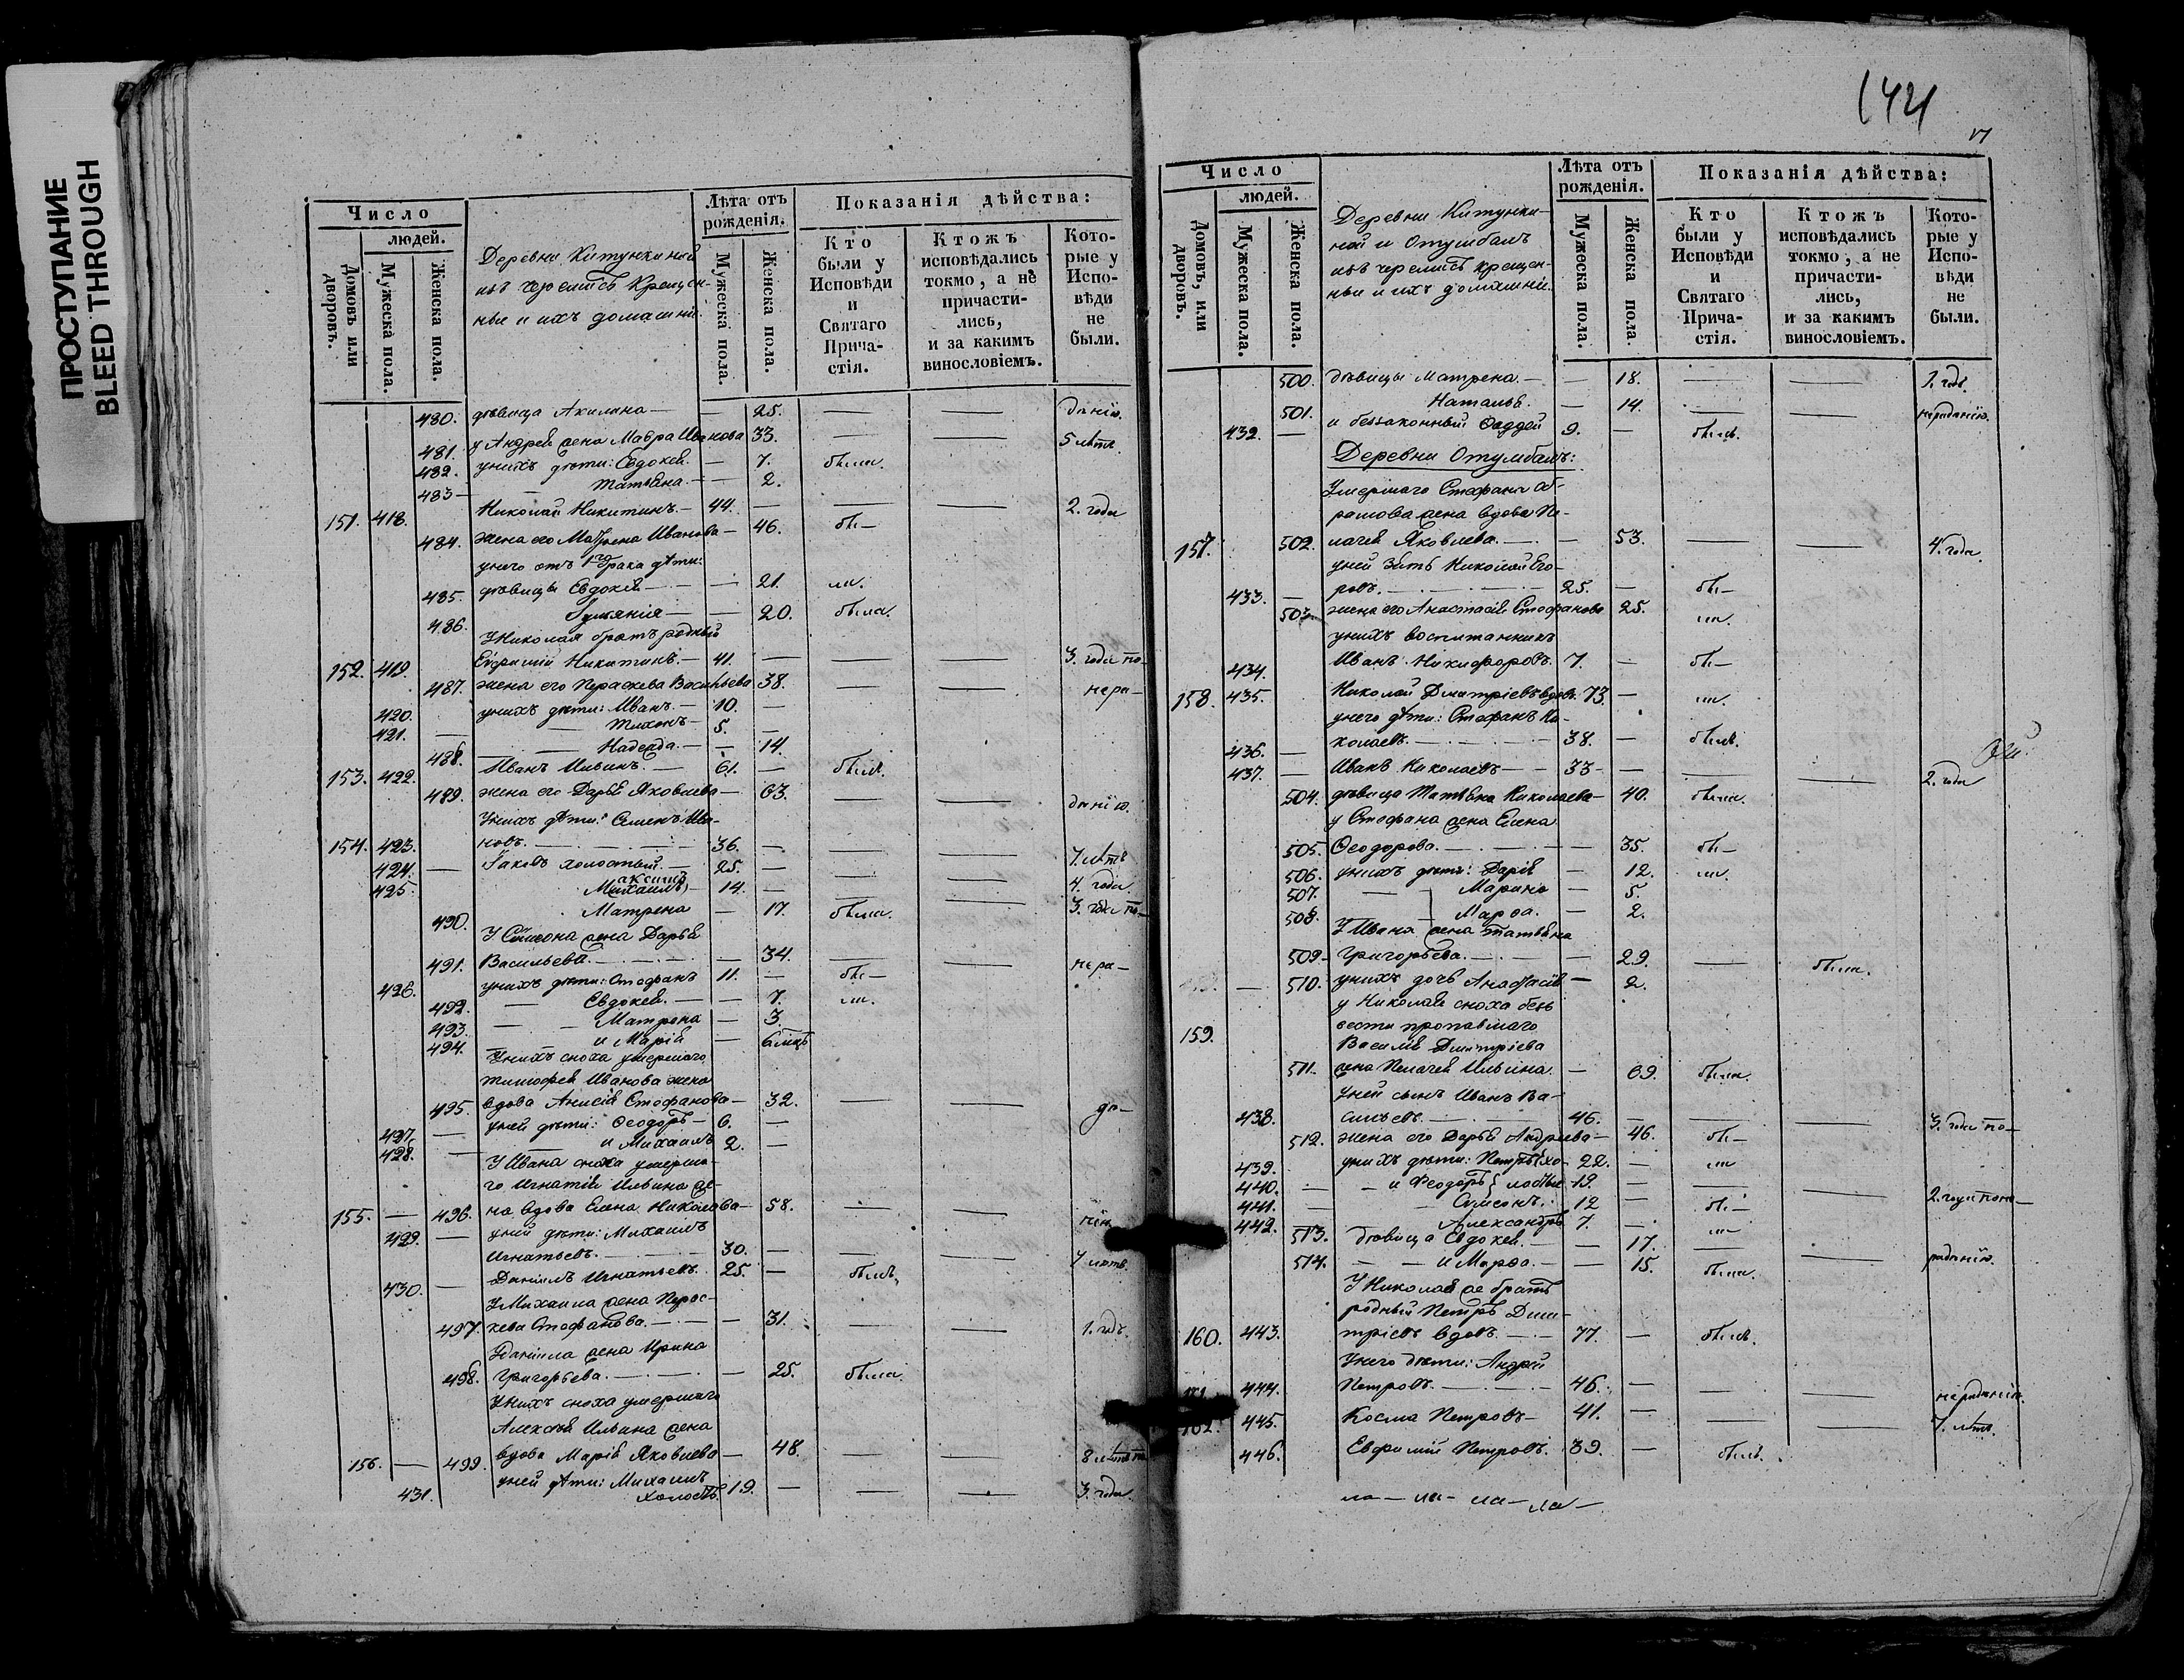 ПРОСТУПАНИЕ
BLEED THROUGH
Число
людей.
Домовъ или дворовъ.
Мужеска пола.
Женска пола.
Деревни Китункиной
изъ черемисъ крещен-
ные и ихъ домашни.
Лѣта отъ рожденія.
Мужеска пола.
Женска пола.
Показанія дѣйства:
Кто были у Исповѣди и Святаго Прича-стія.
Ктожъ исповѣдались токмо, а не причасти-лись, и за какимъ винословіемъ.
Кото-рые у Испо-вѣди не были.
480. дѣвица Акилина — — 25. — —
481. у Андрея жена Мавра Иванова 33. — — 5 лѣтъ
482. унихъ дѣти: Евдокея. — 7. были.
483 — Татьяна. — — 2.
151. 418. Николай Никитинъ. — 44. — — — 2. года
484. жена его Матрена Иванова — 46. бы —
унего отъ 1го брака дѣти:
485. дѣвицы Евдокея — — 21. ли.
486. — — 20. была.
У Николая братъ родный
152. 419. Ефимій Никитинъ. — 41. — — — 3. года по-
487. жена его Параскева Васильева 38. — — нера —
420. унихъ дѣти: Иванъ. — 10. —
421. — — Тихонъ — 5. —
488. — — Надежда. — — 14.
153. 422. Иванъ Ильинъ. — 61. — былъ.
489. жена его Дарья Яковлева — 63. — — дѣнію.
Унихъ дѣти: Семенъ Ива-
154. 423. новъ. — 36. — — — 7. лѣтъ
424. — Іаковъ холостый. — 25. — — — 4. года.
аксимъ
425. Михаилъ) — 14. — — — 3. года по —
490. Матрена — 17. была.
У Симеона жена Дарья
491. Васильева. — — 34. — — нера —
426. унихъ дѣти: Стефанъ 11. — бы —
492. — Евдокея. — — 7. ли.
493. — — Матрена — 3.
494. — и Марія — 6 мцъ
Унихъ сноха умершаго
Тимофея Иванова жена
495. вдова Анисія Стефанова — 32. — — дѣ —
427. — уней дѣти: Ѳеодоръ — 6. —
428. — и Михаилъ 2. —
У Ивана сноха умерша-
го Игнатія Ильина же-
155. — 496. на вдова Елена Николаева — 58. — — нію
429. — уней дѣти: Михаилъ
Игнатьевъ. — 30. — — — 7 лѣтъ
430. — Даніилъ Игнатьевъ. 25. — былъ,
У Михаила жена Парас-
497. кева Стефанова. — — 31. — — 1. годъ.
У Даніила жена Ирина
498. Григорьева. — — 25. была
Унихъ сноха умершаго
Алексѣя Ильина жена
156. — 499. вдова Марія Яковлева — 48. — — 8 лѣтъ
431. уней дѣти: Михаилъ
холостъ. 19. — — — 3. года.
144
Число
людей.
Домовъ, или дворовъ.
Мужеска пола.
Женска пола.
Деревни Китунки-
ной и Отумбалъ
изъ черемисъ крещен-
ные и ихъ домашни.
Лѣта отъ рожденія.
Мужеска пола.
Женска пола.
Показанія дѣйства:
Кто были у Исповѣди и Святаго Прича-стія.
Ктожъ исповѣдались токмо, а не причасти-лись, и за какимъ винословіемъ.
Кото-рые у Испо-вѣди не были.
500. дѣвицы Матрена. — — 18. — — 1. годъ
501. Наталья. — 14. — — нерадѣнію.
432. — и беззаконный Ѳаддей 9. — былъ.
Деревни Отумбалъ:
Умершаго Стефана Аб-
рамова жена вдова Пе-
157. 502. лагея Яковлева. — — 53. — — 4. года
уней зять Николай Его-
433. — ровъ. — 25. — бы —
503. жена его Анастасія Стефанова 25. ли.
унихъ воспитанникъ
434. Иванъ Никифоровъ. 7. — бы —
158. 435. Николай Дмитріевъ вдов. 73. — ли.
унего дѣти: Стефанъ Ни-
436. — колаевъ. — 38. — былъ.
437. — Иванъ Николаевъ — 33 — — — — 2. года
504. дѣвица Татьяна Николаева — 40. была.
у Стефана жена Елена
505. Ѳеодорова. — — 35. бы —
506. унихъ дѣти: Дарія — 12. ли.
507. — Марина — 5.
508. — Марѳа. — 2.
У Ивана жена Татьяна
509 — Григорьева. — — 29. — была.
— 510. унихъ дочь Анастасія — 2.
у Николая сноха безъ
159. вести пропавшаго
Василія Дмитріева
511. жена Пелагея Ильина. — 69. была.
Уней сынъ Иванъ Ва-
438. сильевъ. — 46. — — — 3. года по —
512. жена его Дарья Андреева — 46. бы —
439. унихъ дѣти: Петръ хо- 22. — ли
440. — — и Ѳеодоръ лостые 19. — — — 2. года
441. — Симеонъ. 12 — бы —
442. — Александръ 7. — ли
513. дѣвица Евдокея. — — 17. — — радѣнію.
514. — — и Марѳа. — — 15. была.
У Николая же братъ
родный Петръ Дми-
160. 443. тріевъ вдовъ. — 77. — былъ.
Унего дѣти: Андрей
444. Петровъ. — 46. — — — нерадѣнію.
162. 445. Косма Петровъ — 41. — — — 7. лѣтъ.
446. Евфимій Петровъ. 39. — былъ.
ла — ла — ла — ла —